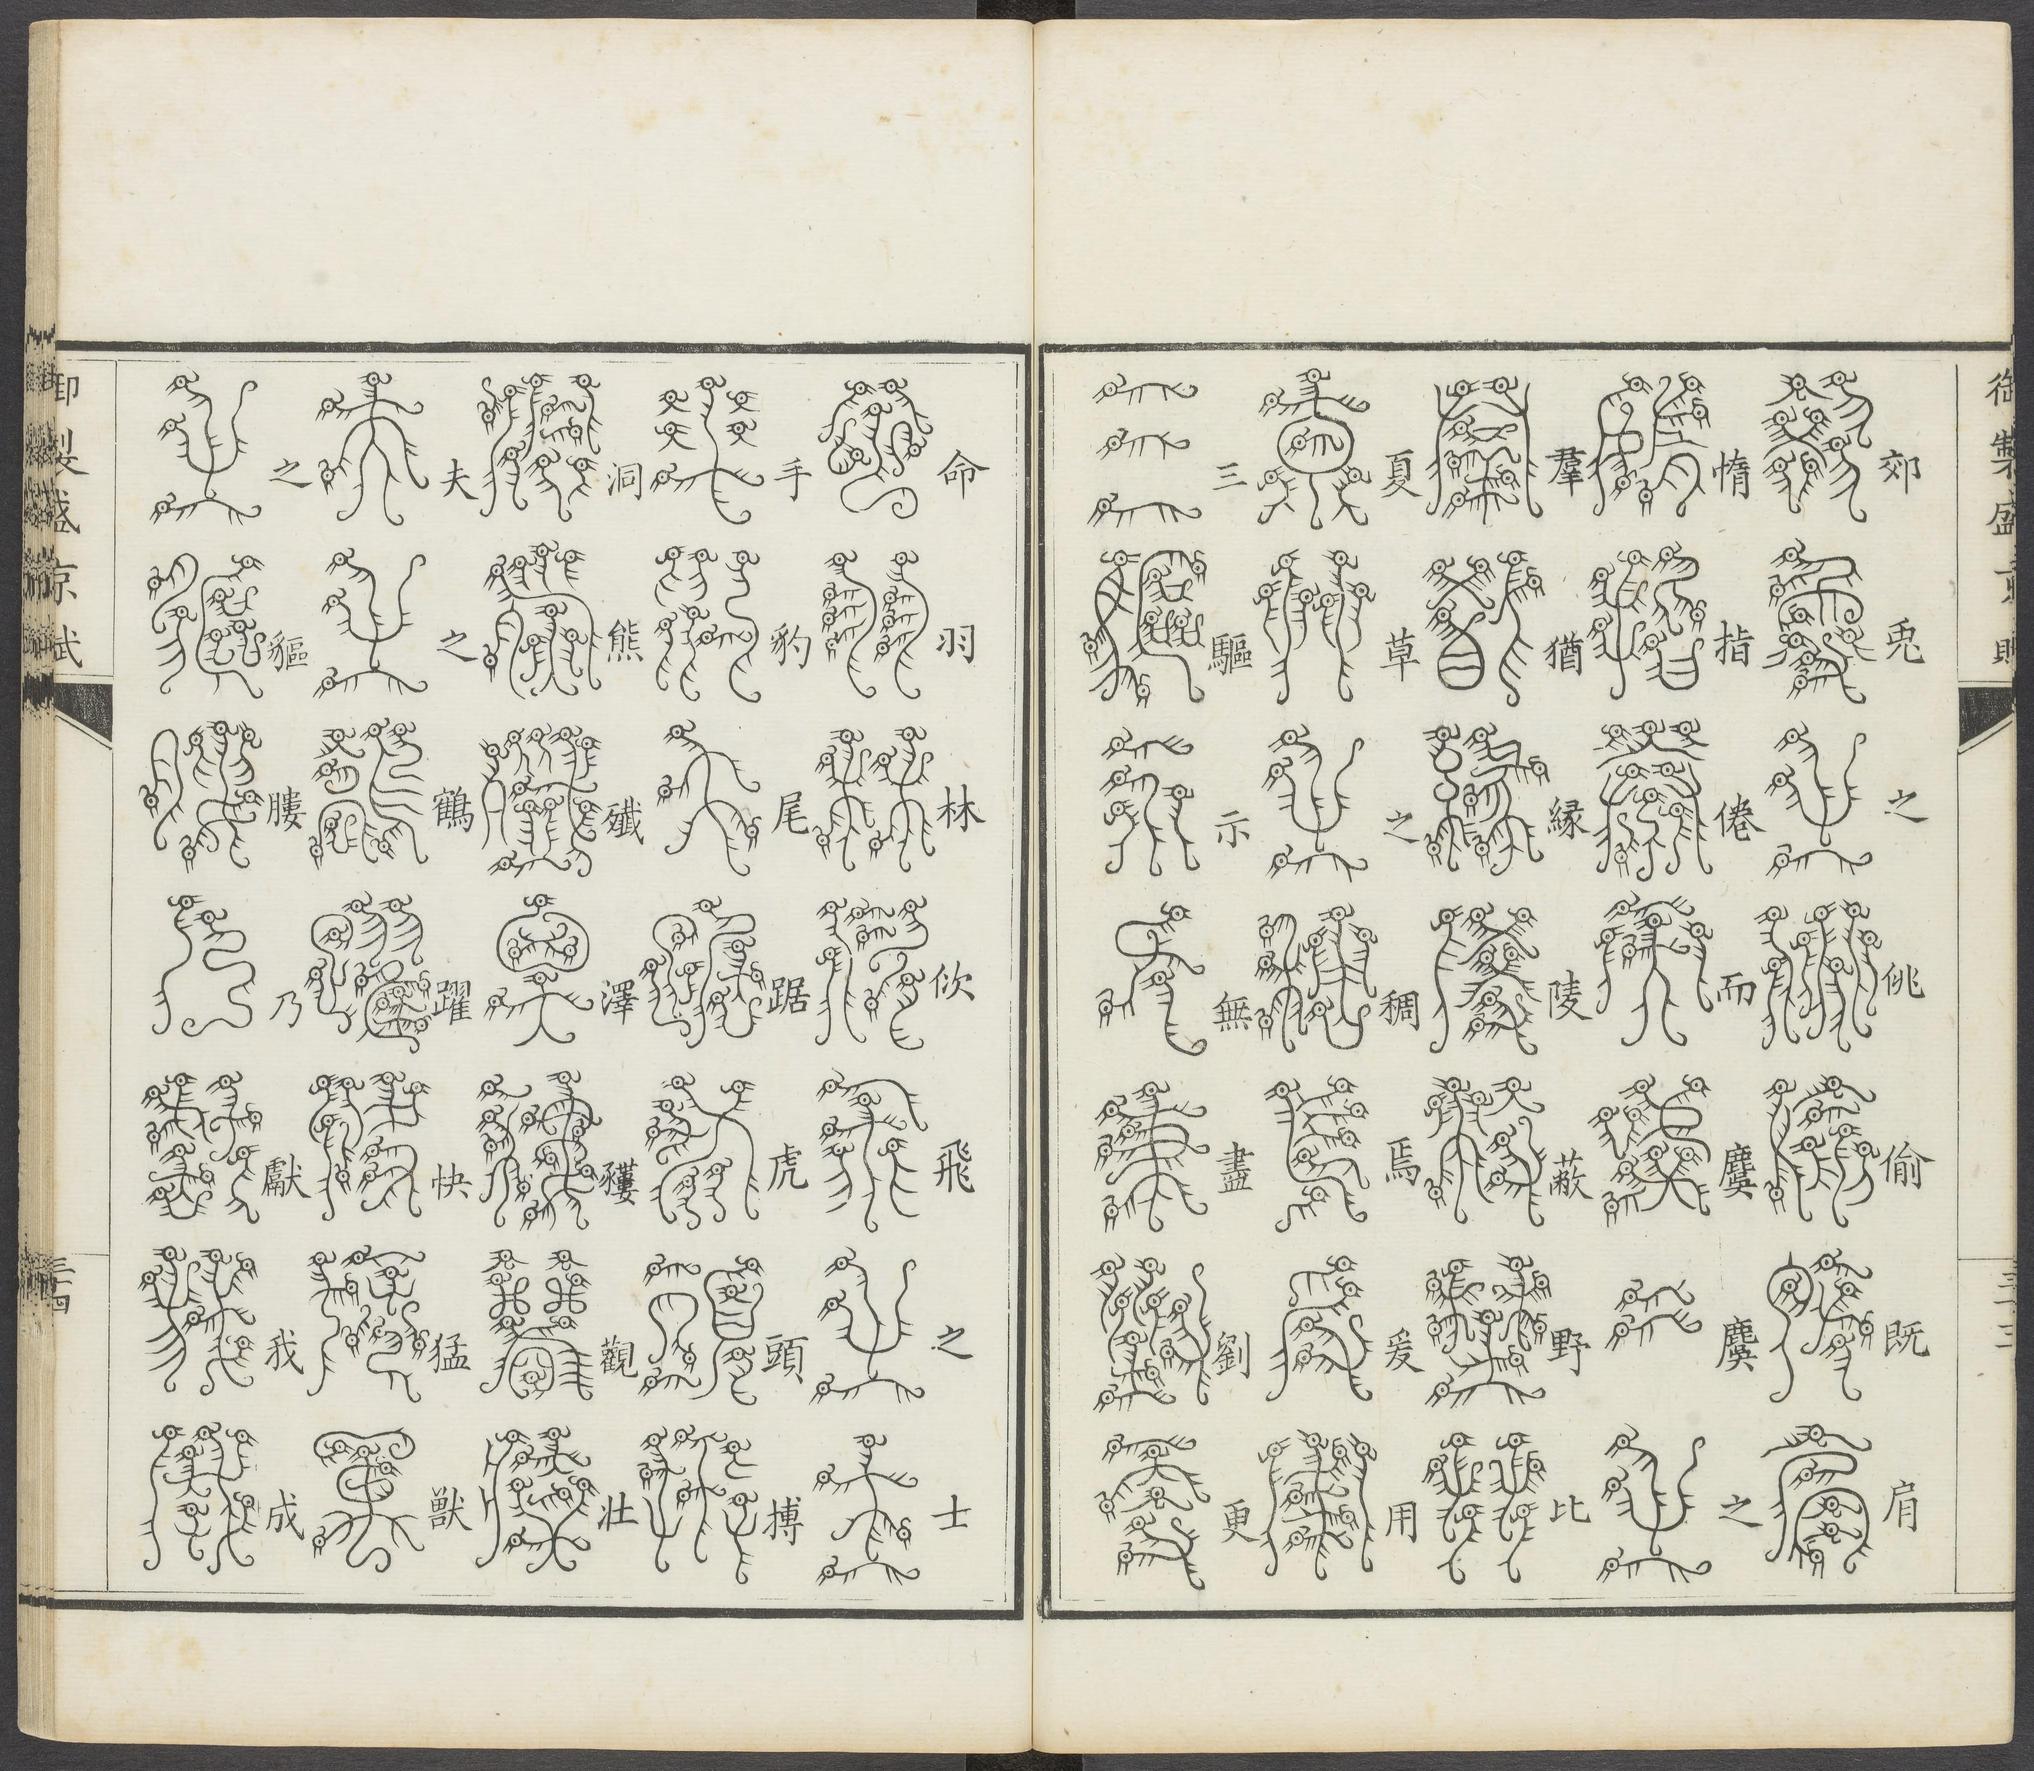 御製盛京賦
三十三
郊兎之佻偷既肩
惰指倦而麌麌之
羣猶縁陵蔽野比
夏草之稠焉爰用
三驅示無盡劉更
命羽林佽飛之士
手豹尾踞虎頭搏
洞熊殱澤貗觀壯
夫之鶴躍快猛獸
之貙膢乃獻我成
御製盛京賦
三十四